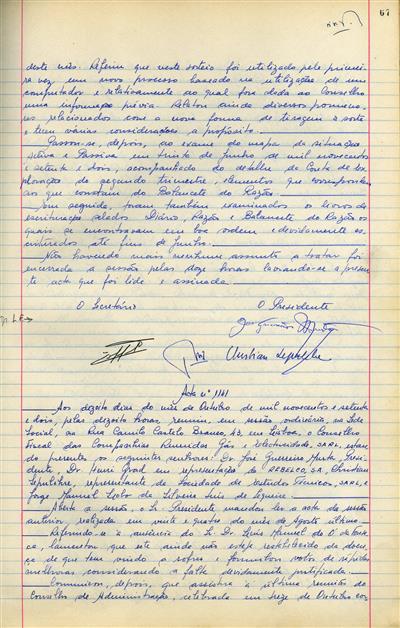 67
deste mês. Referiu que neste sorteio foi utilizado pela primei-
ra vez um novo processo baseado na utilização de um
computador e relativamente ao qual fora dada ao Conselho
uma informação prévia. Relatou ainda diversos pormeno-
res relacionados com a nova forma de tiragem à sorte
e teceu várias considerações a propósito.
Passou-se, depois, ao exame do mapa da situação
activa e Passiva em trinta de Junho de mil novecentos
e setenta e dois, acompanhado do detalhe da Conta de Ex-
ploração do segundo trimestre, elementos que
que constam do Balancete do Razão.
Em seguida, foram também examinados os livros de
escrituração selados Diário, Razão e Balancete do Razão os
quais se encontravam em boa ordem e devidamente es-
criturados até fins de Junho.
Não havendo mais nenhum assunto a tratar foi
encerrada a sessão pelas doze horas lavrando-se a presen-
te acta que foi lida e assinada.
O Secretário O Presidente
Acta nº 1141
Aos dezoito dias do mês de Outubro de mil novecentos e setenta
e dois, pelas dezoito horas, reuniu, em sessão ordinária, na Sede
Social, na Rua Camilo Castelo Branco, 43, em Lisboa, o Conselho
Fiscal das Companhias Reunidas Gás e Electricidade, SARL, estan-
do presentes os seguintes senhores: Dr. José Guerreiro Murta, Presi-
dente, Dr. Henri Grad em representação da REBELCO, SA, Christian
Lepelletre, representante da Sociedade de Estudos Técnicos, SARL, e
Jorge Manuel da Silveira
Aberta a sessão, o Sr. Presidente mandou ler a acta da sessão
anterior, realizada em vinte e quatro do mês de Agosto último.
Referindo-se à ausência do Sr. Dr. Manuel
lamentou que este ainda não esteja restabelecido da doen-
ça de que tem vindo a sofrer e formulou votos de rápidas
melhoras, considerando a falta devidamente justificada.
Comunicou, depois, que assistira à última reunião do
Conselho de Administração, celebrada em treze de Outubro cor-